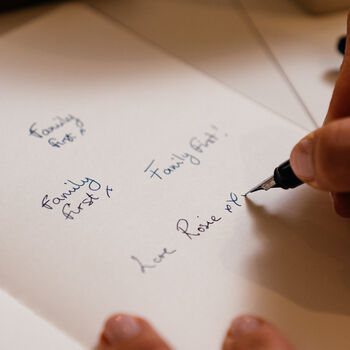 Family
First x
Family First!
Family
First x
Love Rosie xx